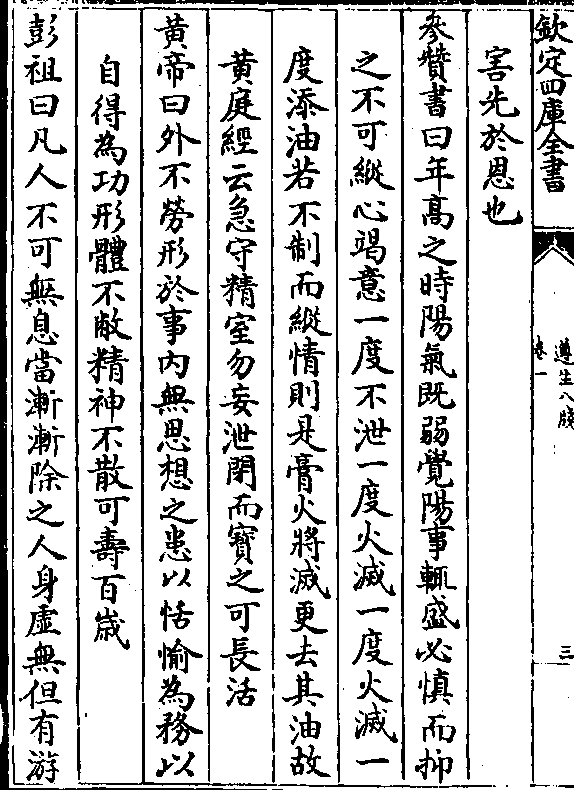 欽定四庫全書
遵生八牋
卷一
三
害先於恩也
參贊書曰年髙之時陽氣既弱覺陽事輒盛必慎而抑
之不可縱心竭意一度不泄一度火滅一度火滅一
度添油若不制而縱情則是膏火將滅更去其油故
黄庭經云急守精室勿妄泄閉而寳之可長活
黄帝曰外不勞形於事内無思想之患以恬愉為務以
自得為功形體不敝精神不散可壽百歲
彭祖曰凡人不可無息當漸漸除之人身虛無但有游